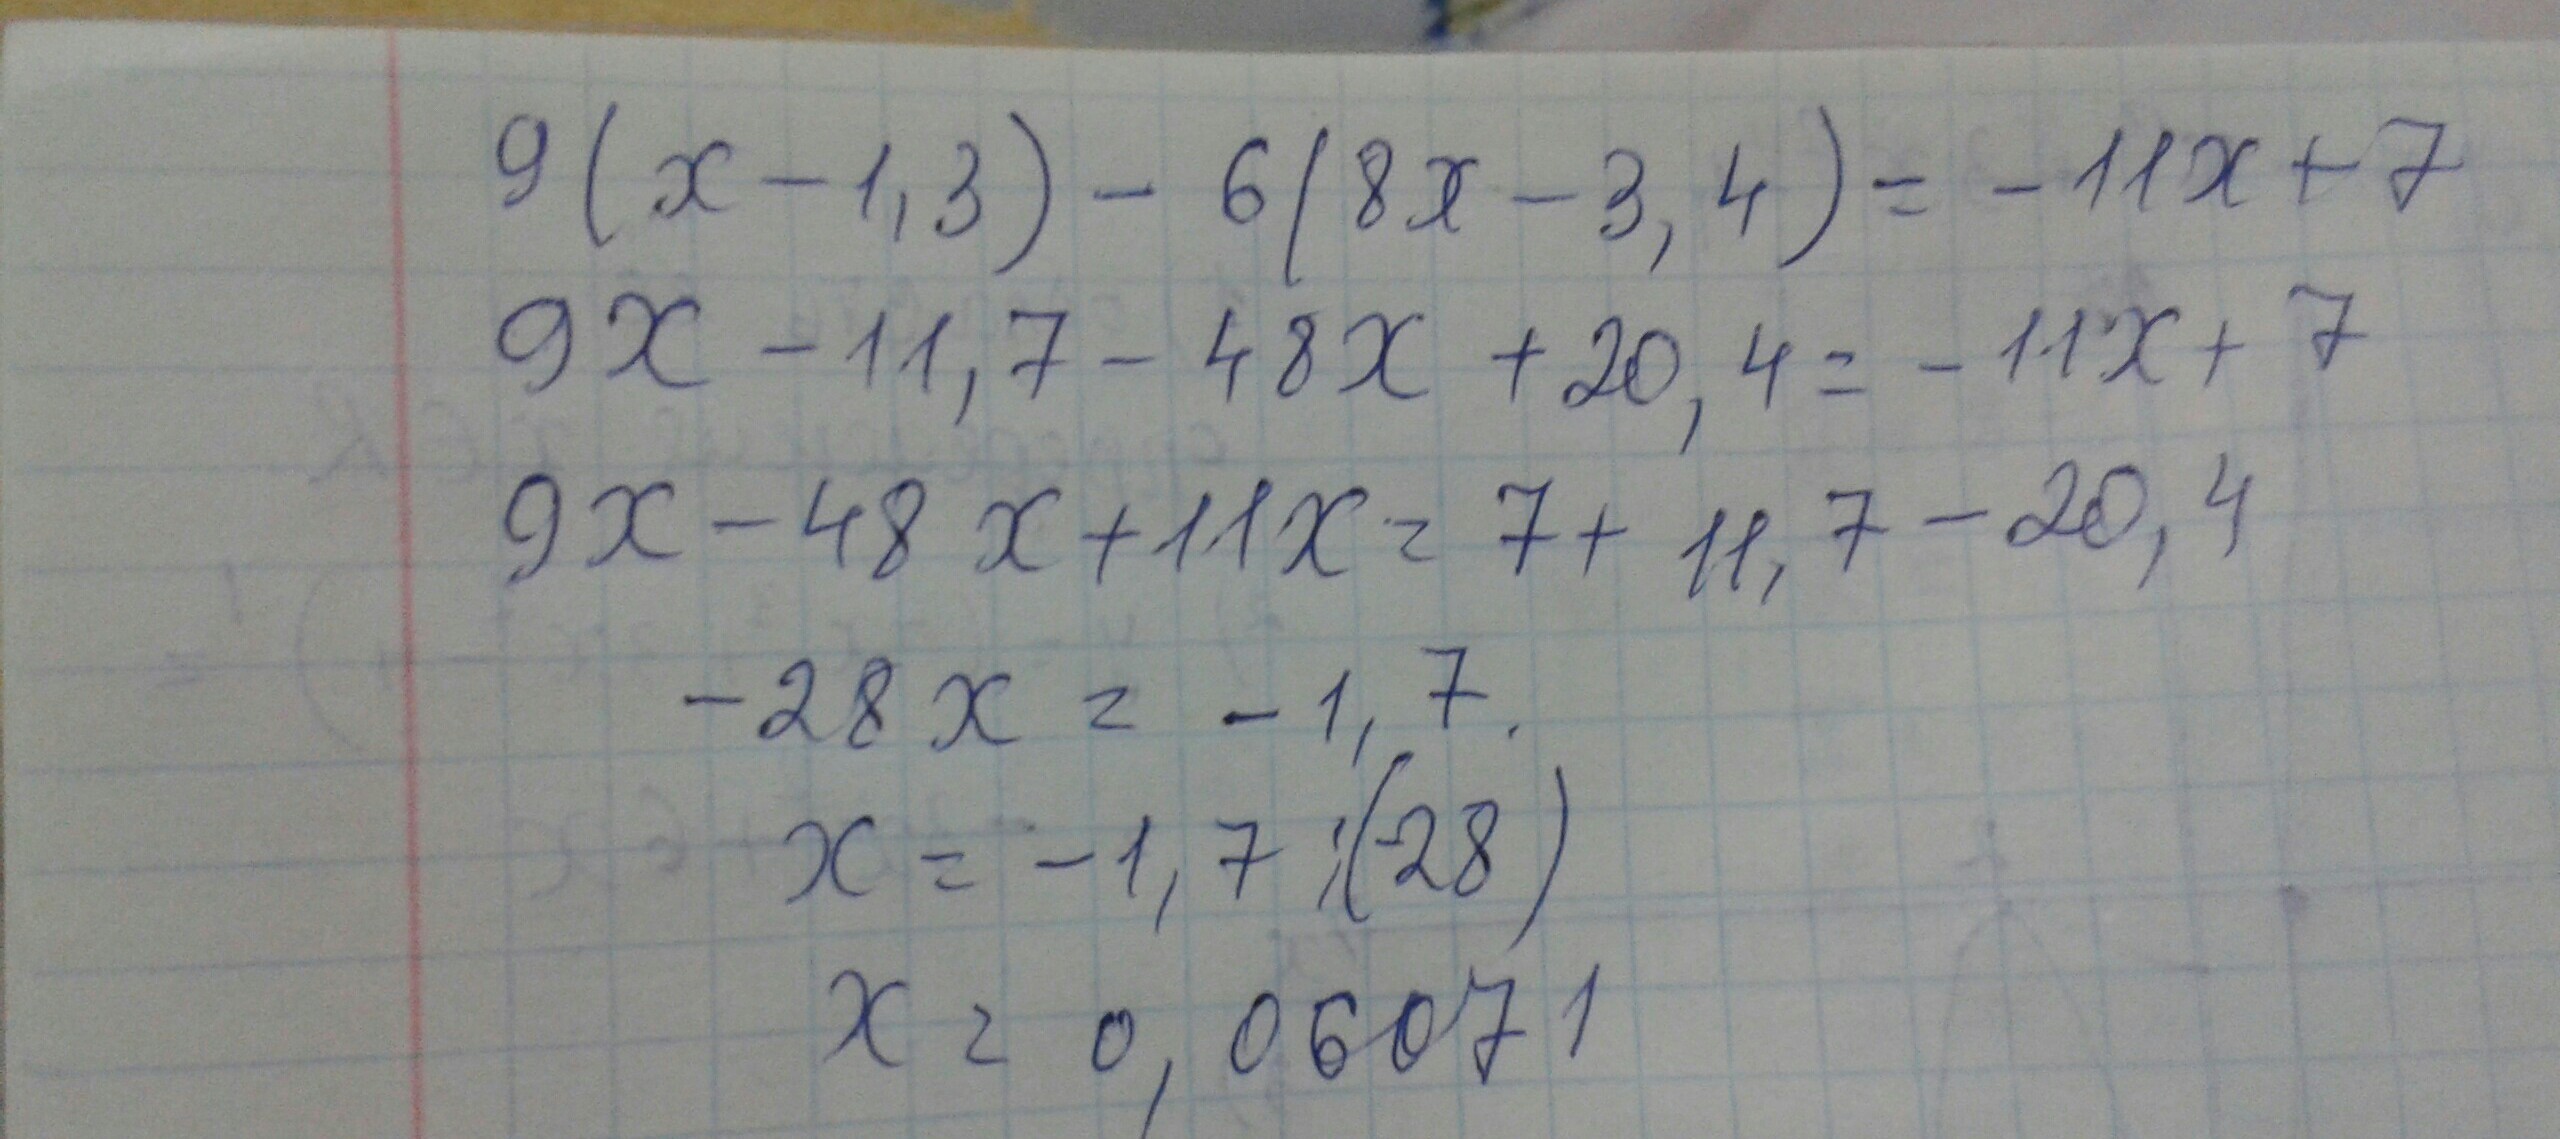 9(x-1,3)-6(8x-3,4)=-11x+7
9x-11,7-48x+20,4=-11x+7
9x-48x+11x=7+11,7-20,4
-28x=-1,7.
x=-1,7:(-28)
x=0,06071